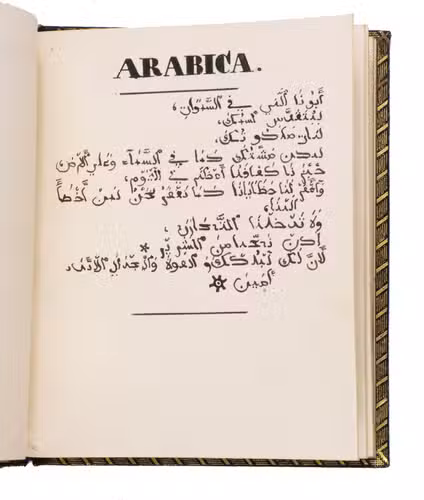 ARABICA.
أبونا الذي في السموات،
ليتقدس اسمك،
لتات ملكوتك،
لتكن مشئتك كما في السماء وعلى الأرض
خبزنا كفافنا في اليوم،
واغفر لنا خطايانا كما نغفر نحن لمن أخطأ
الينا،
ولا تدخلنا
نجنا من الشرير
لأن لك والقوة الى الأبد
أمين